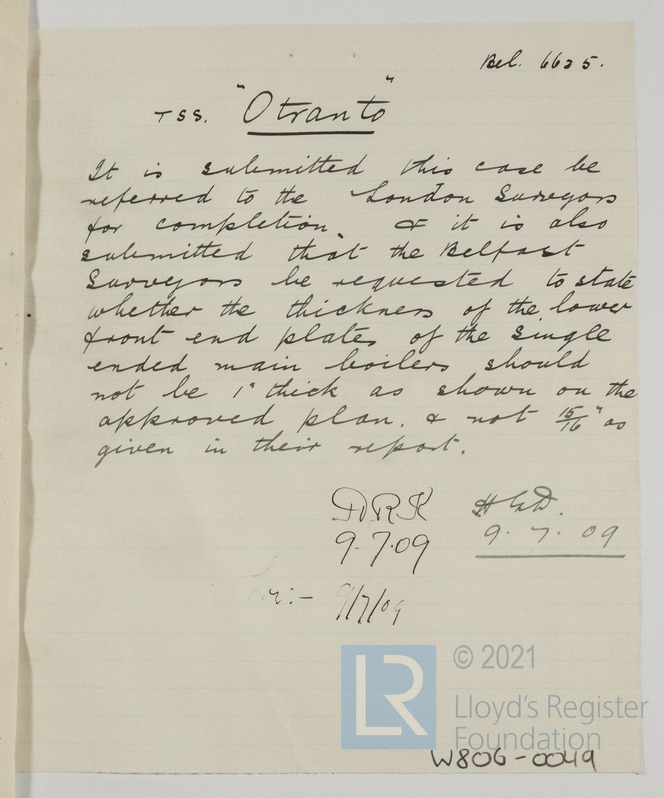 Bel. 6625.
TSS. "Otranto"
It is submitted this case be
referred to the London Surveyors
for completion. & it is also
submitted that the Belfast
Surveyors be requested to state
whether the thickness of the lower
front end plates of the single
ended main boilers should
not be 1" thick as shown on the
approved plan. & not 15/16" as
given in their report.
9.7.09
9.7.09
9/7/09
© 2021
LR
Lloyd's Register
Foundation
W806-0049